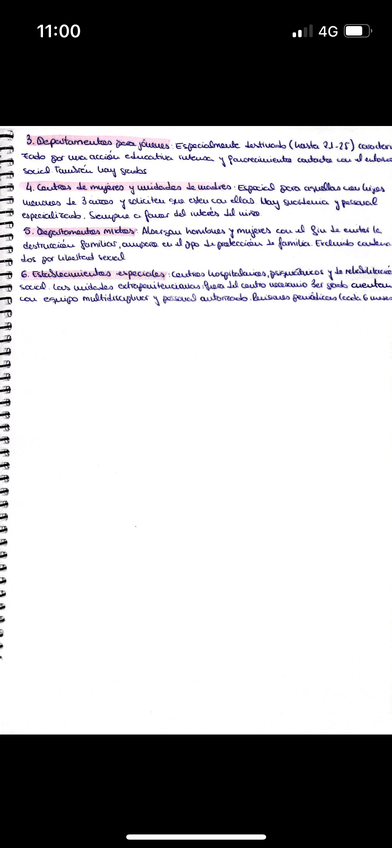 11:00
4G
3. Departamentos para jóvenes: Especialmente destinado (hasta 21-25)
por una acción educativa intensa y contactos con el entorno
social También hay grados
4. Centros de mujeres y unidades de madres: Especial para aquellas con hijos
menores de 3 años y soliciten que estén con ellas Hay guardería y personal
especializado. Siempre a favor del interés del niño
5. Departamentos mixtos: Albergan hombres y mujeres con el fin de evitar la
destrucción familiar, en el de protección de familia. Excluido condena
dos por libertad sexual
6. Establecimientos especiales: Centros hospitalarios, psiquiátricos y de rehabilitación
social. Las unidades extrapenitenciarias: fuera del centro necesario 3er grado cuentan
con equipo multidisciplinar y personal autorizado. Revisiones periódicas (cada 6 meses